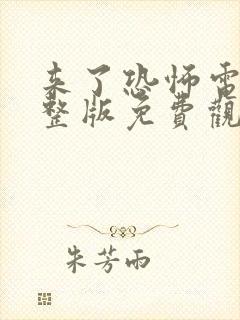 来了恐怖電
整版免費觀
朱芳雨